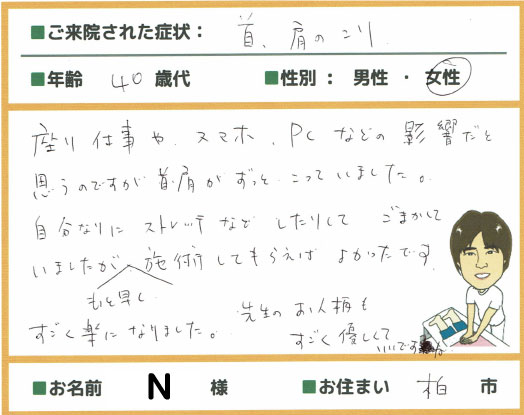 ■ご来院された症状： 首、肩のこり
■年齢 40 歳代 ■性別： 男性 ・ 女性
座り仕事や、スマホ、PCなどの影響だと
思うのですが首・肩がずっと、こっていました。
自分なりにストレッチなどしたりして ごまかして
いましたが 施術してもらえば よかったです。
もっと早く
すごく楽になりました。 先生のお人柄も
すごく優しくて
いいです
■お名前 N 様 ■お住まい 柏 市